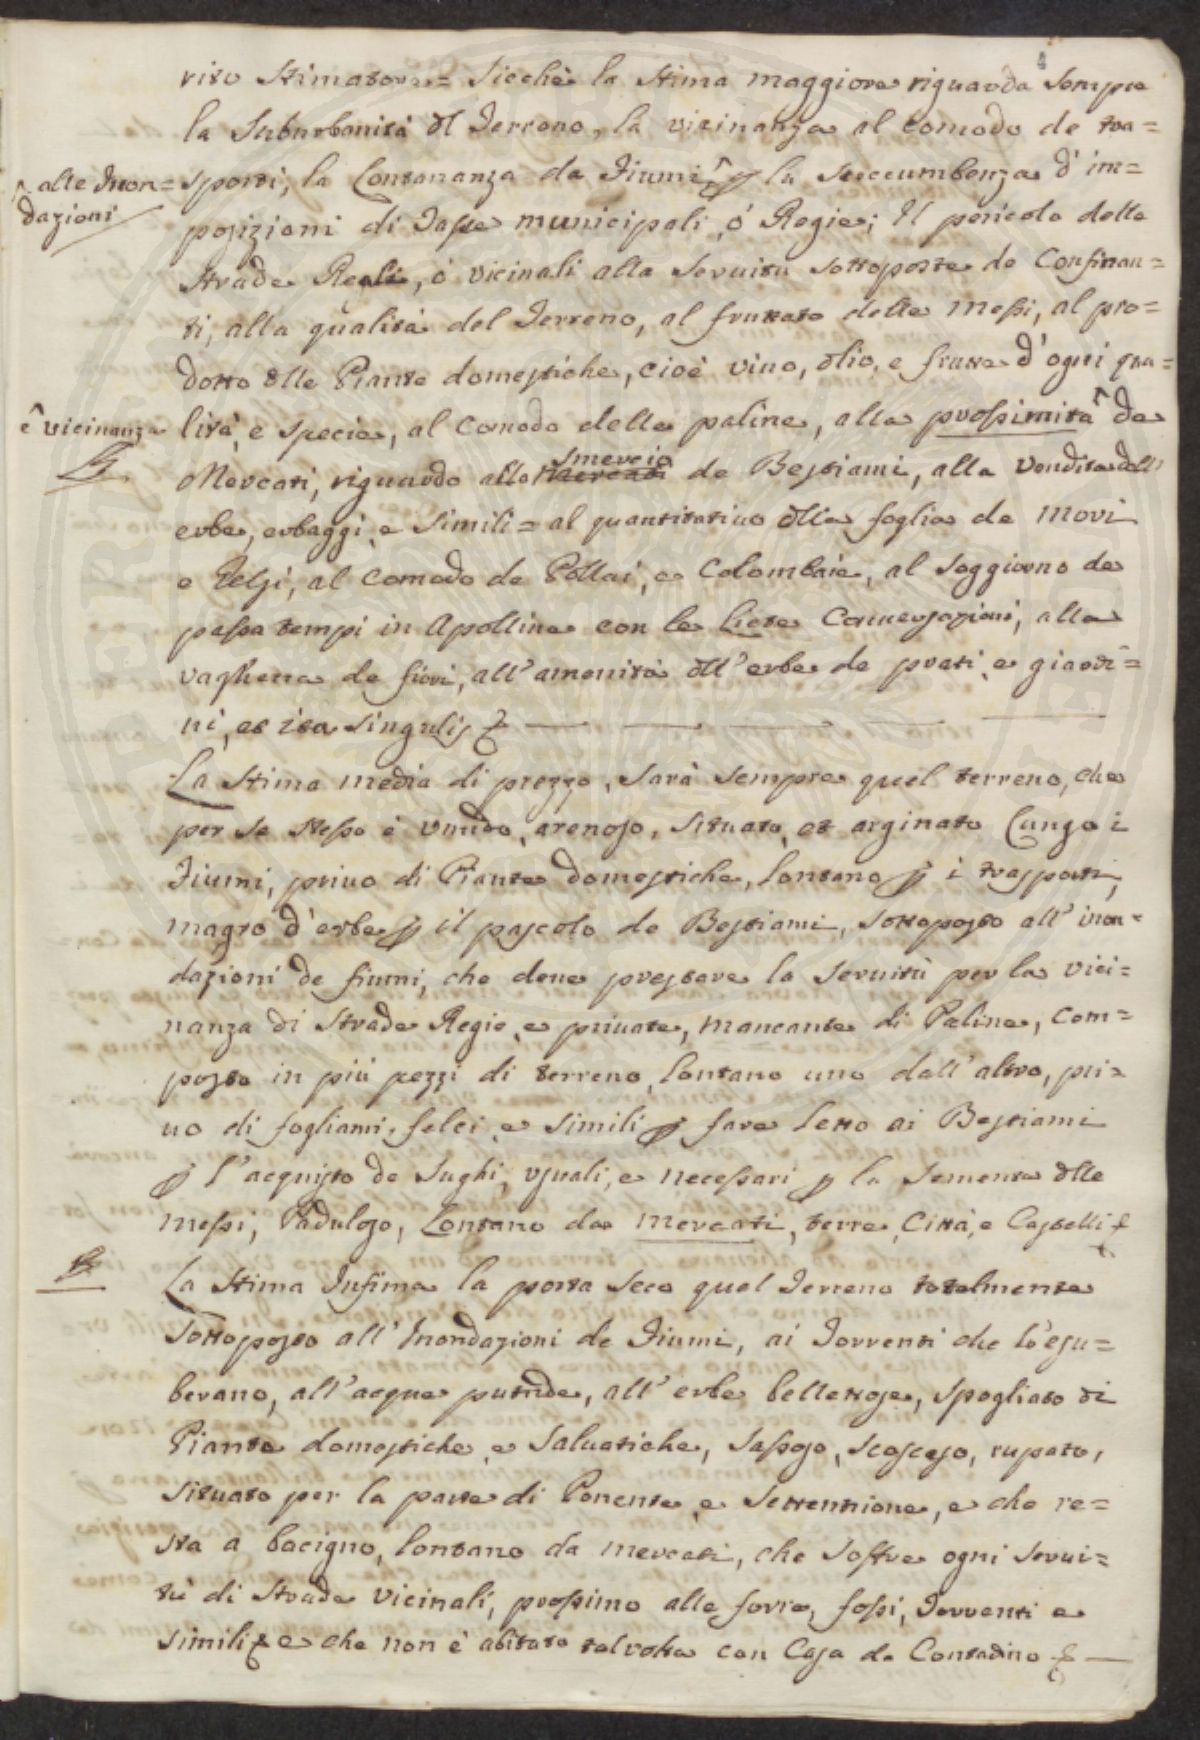 4
rito Stimatore = Sicchè la Stima maggiore riguarda sempre
la Suburbanità dl Terreno, la vicinanza al comodo de tra=
^ alle Inon=
dazioni
sporti, la Lontananza da Fiumi ^ p la Soccumbenza d' im=
posizioni di Tasse municipali ò Regie; Il pericolo delle
Strade Reali, ò vicinali alla Servitù sottoposte de Confinan=
ti, alla qualità del Terreno, al fruttato delle Messi, al pro=
dotto dlle Piante domestiche, cioè vino, olio, e frutta d'ogni qua=
e^ vicinanza
lità, e specie, al comodo delle paline, alla prossimità ^ da
Mercati, riguardo allo Smercio de Bestiami, alla Vendita dell'
erbe, erbaggi, e simili = al quantitativo dlla foglia de Mori
e Gelsi, al comodo de Pollai, e Colombaie, al Soggiorno de
passatempi in Apolline con le liete Conversazioni, alla
vaghezza de fiori, all'amenità dll'erbe de prati, e giardi=
ni, et ita singulis
La Stima media di prezzo, sarà sempre quel terreno, che
per se stesso è umido, arenoso, situato, et arginato Lungo i
Fiumi, privo di Piante domestiche, lontano p i trasporti,
magro d'erbe p il pascolo de Bestiami, sottoposto all'inon=
dazioni de fiumi, che deve prestare la servitù per la vici=
nanza di Strade Regie, e private, mancante di Paline, com=
posto in più pezzi di terreno, lontano uno dall'altro, pri=
vo di fogliami, felci, e simili p fare Letto ai Bestiami
p l'acquisto de Sughi, usuali, e necessari p la Sementa dlle
Messi, Paduloso, Lontano da mercati, terre, Città, e Castelli
La Stima Infima la porta seco quel Terreno totalmente
Sottoposto all'Inondazioni de Fiumi, ai Torrenti che l'esu=
berano, all'acque putride, all'erbe bellettose, spogliato di
Piante domestiche e Salvatiche, sassoso, scosceso, rupato,
situato per la parte di Ponente, e Settentrione, e che re=
sta a bacigno, lontano da mercati, che soffre ogni servi=
tù di Strade vicinali, prossimo alle forre, fossi, Torrenti e
simili e che non è abitato talvolta con Casa da Contadino